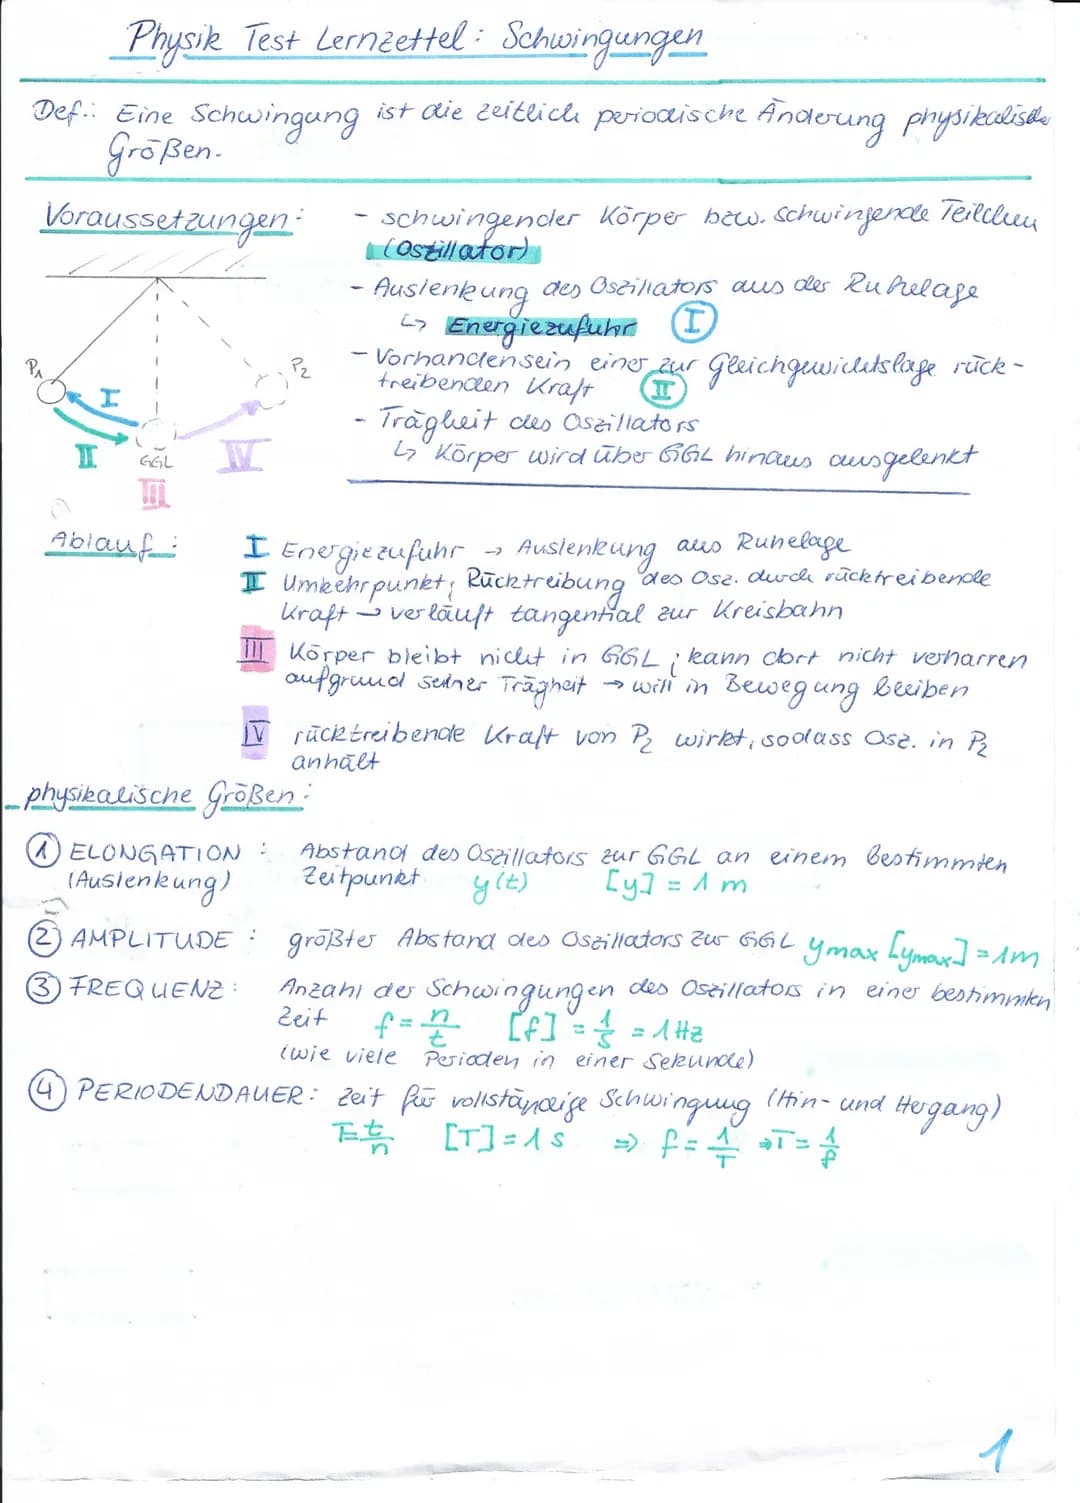 Physik Test Lernzettel: Schwingungen
Def.: Eine Schwingung ist die zeitlich periodische Änderung physikalische
Größen.
Voraussetzungen:
- schwingender Körper bzw. schwingende Teilchen
(Oszillator)
- Auslenkung des Oszillators aus der Ruhelage
↳ Energiezufuhr I
- Vorhandensein einer zur Gleichgewichtslage rück-
treibenden Kraft II
- Trägheit des Oszillators
↳ Körper wird über GGL hinaus ausgelenkt
P₁
P₂
I
II
GGL
IV
III
Ablauf:
I Energiezufuhr → Auslenkung aus Ruhelage
II Umkehrpunkt, Rücktreibung des Osz. durch rücktreibende
Kraft → verläuft tangential zur Kreisbahn
III Körper bleibt nicht in GGL; kann dort nicht verharren
aufgrund seiner Trägheit → will in Bewegung bleiben
IV rücktreibende Kraft von P₂ wirkt, sodass Osz. in P₂
anhält
physikalische Größen:
① ELONGATION : Abstand des Oszillators zur GGL an einem bestimmten
(Auslenkung) Zeitpunkt y(t) [y] = 1 m
② AMPLITUDE : größter Abstand des Oszillators zur GGL ymax [ymax] = 1m
③ FREQUENZ : Anzahl der Schwingungen des Oszillators in einer bestimmten
Zeit f = n/t [f] = 1/s = 1 Hz
(wie viele Perioden in einer Sekunde)
④ PERIODENDAUER: Zeit für vollständige Schwingung (Hin- und Hergang)
T = t/n [T] = 1 s ⇒ f = 1/T ⇒ T = 1/f
1